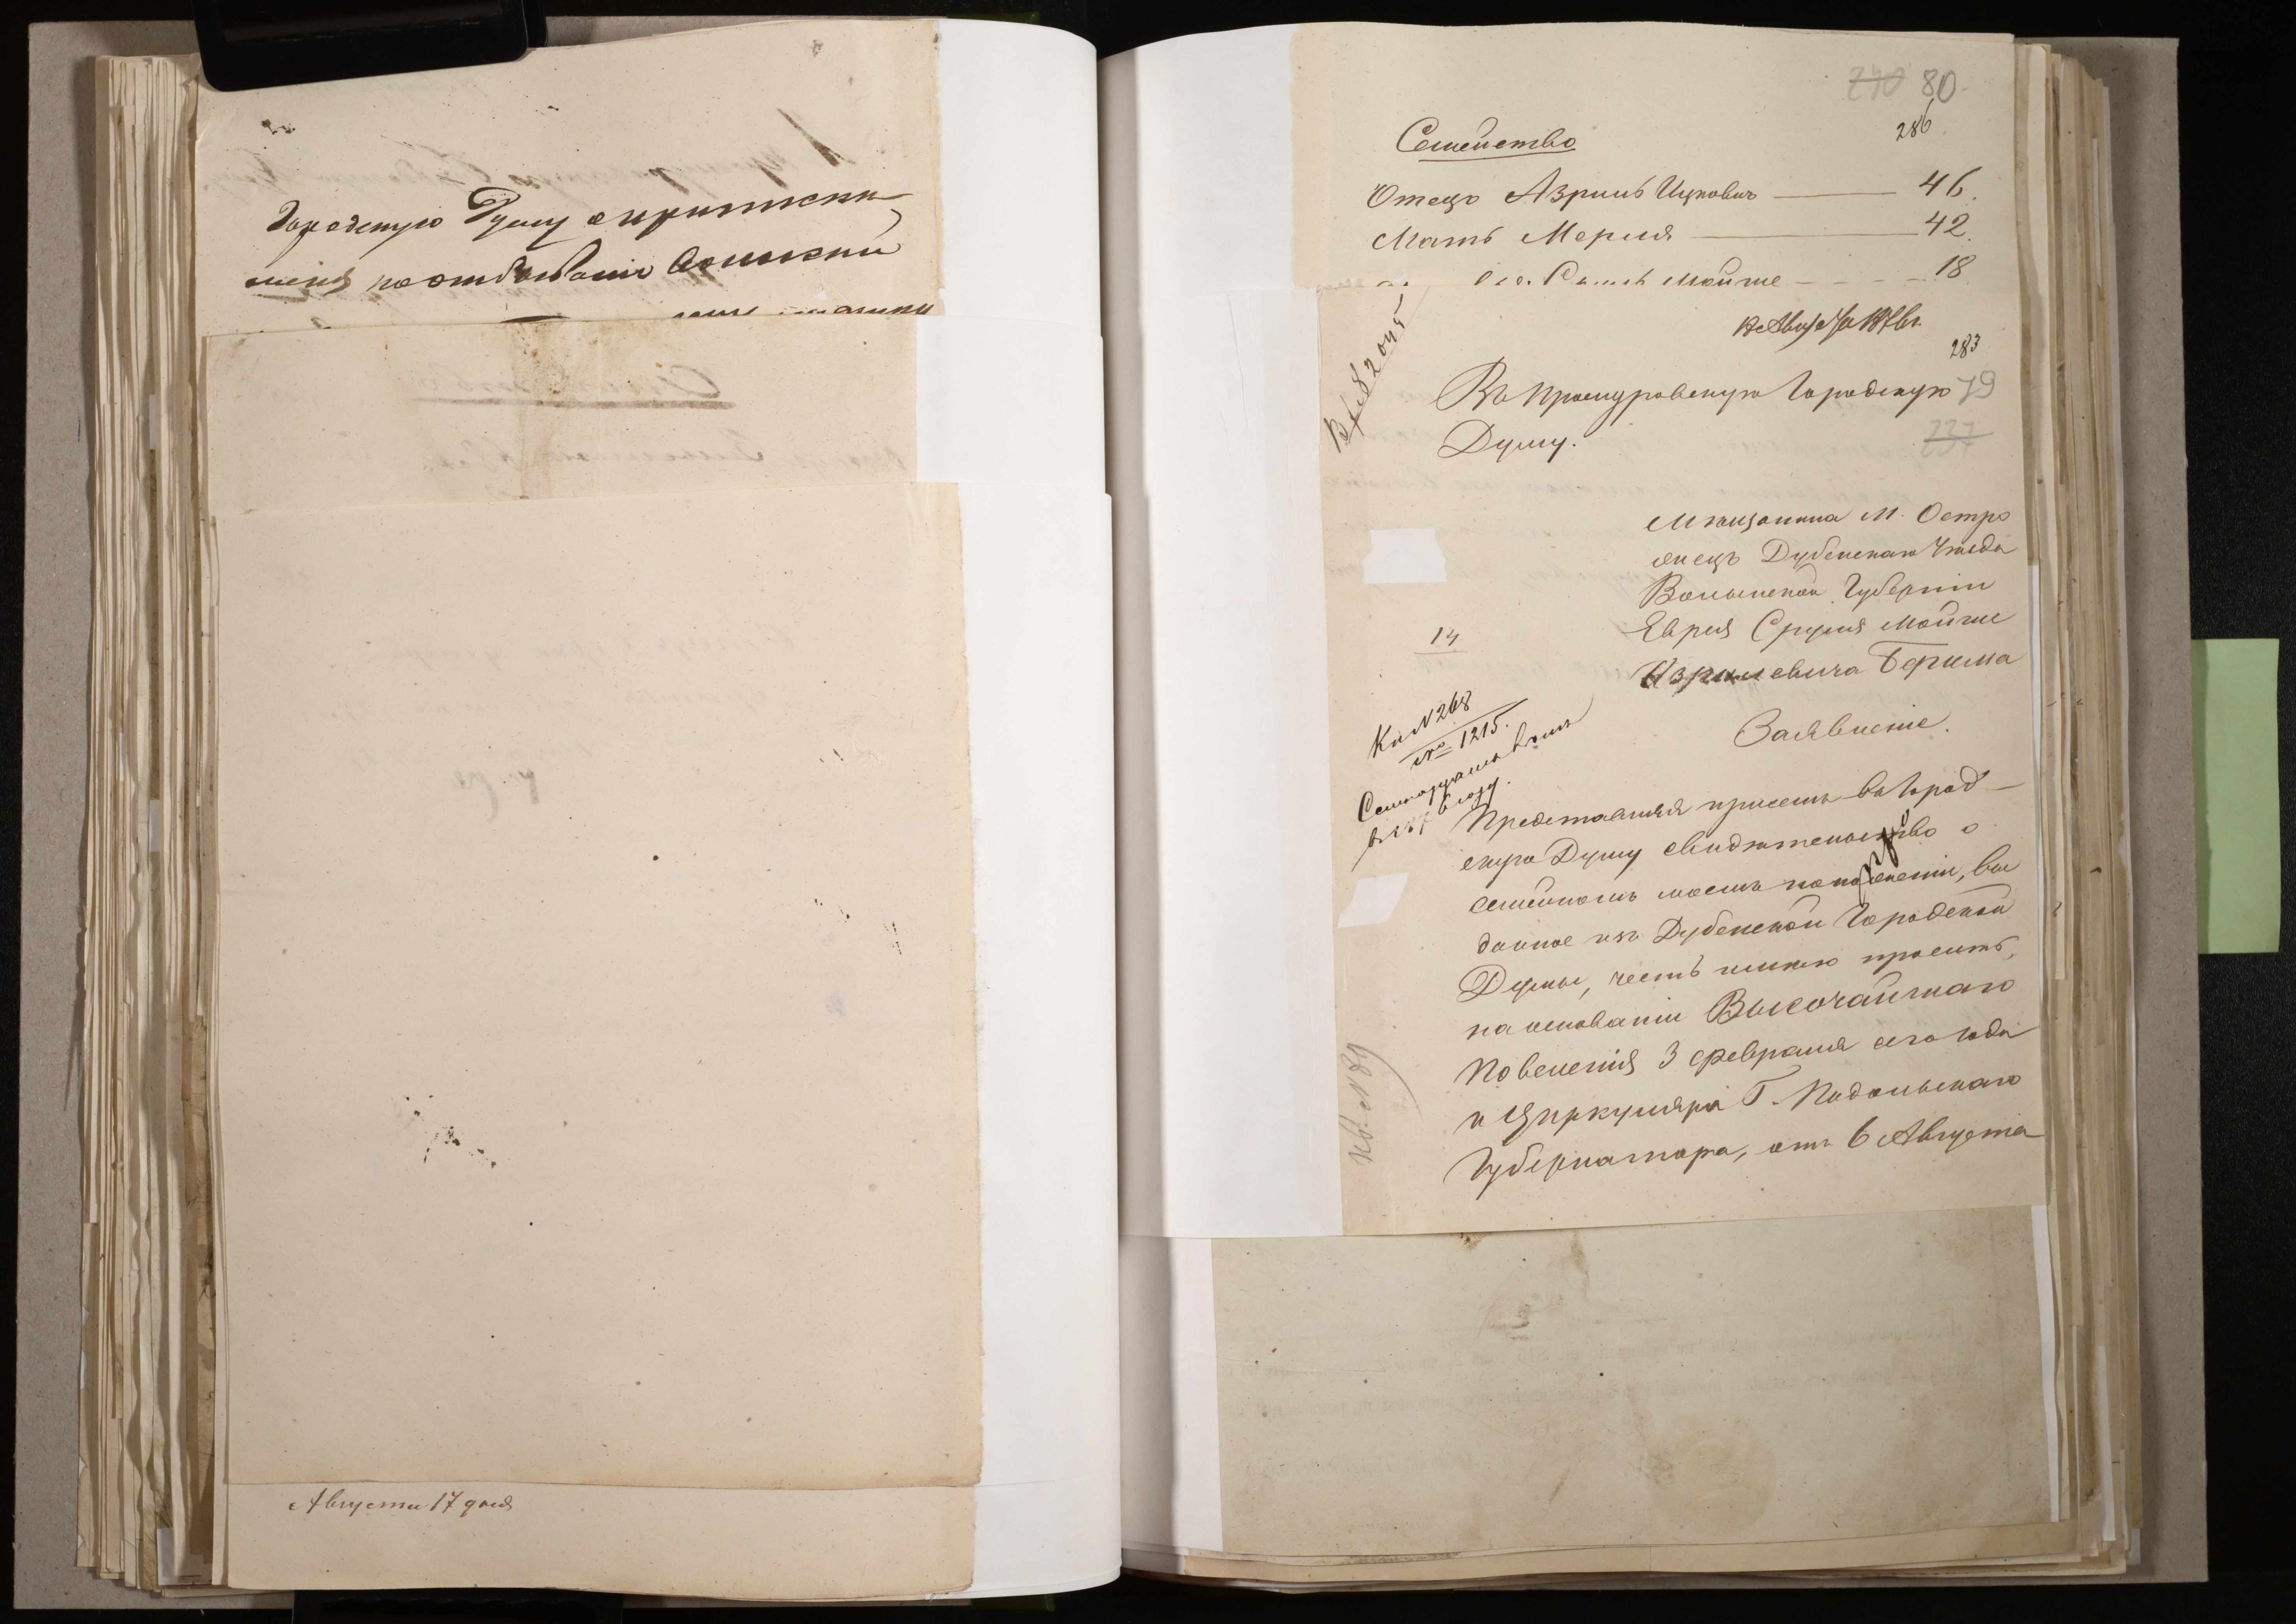 Городскую Думу о приписки
меня по отбыванію воинской
Августа 17 дня
240 80
286
Семейство
Отецъ Азриль Ицковичъ — 46.
Мать Мерля — 42.
Мойше — 18
283
Въ Проскуровскую Городскую 79
Думу. 237
Мѣщанина М. Остро
жецъ Дубенскаго Уѣзда
Волынской Губерніи
Еврея Сруля Мойше
Азрилевича Берима
14
Заявленіе.
Кн № 268
№ 1215.
Представляя присемъ въ Город-
скую Думу свидѣтельство о
семейномъ моемъ положеніи, вы
данное изъ Дубенской Городской
Думы, честь имѣю просить,
на основаніи Высочайшаго
Повеленія 3 февраля сего года
и Циркуляра Г. Подольскаго
Губернатора, отъ 6 Августа
кв. № 89